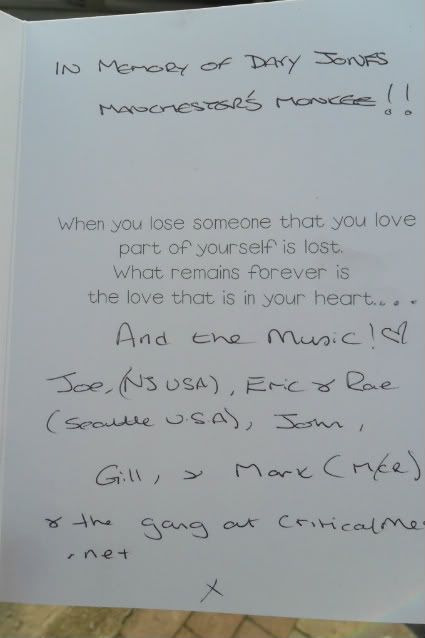 IN MEMORY OF DAVY JONES
MANCHESTER'S MONKEE!!
When you lose someone that you love
part of yourself is lost.
What remains forever is
the love that is in your heart....
And the Music!♡
Joe, (NJ USA), Eric & Rae
(Seattle U.S.A), John,
Gill, & Mark (M/cr)
& the gang at CriticalMe
.net
X